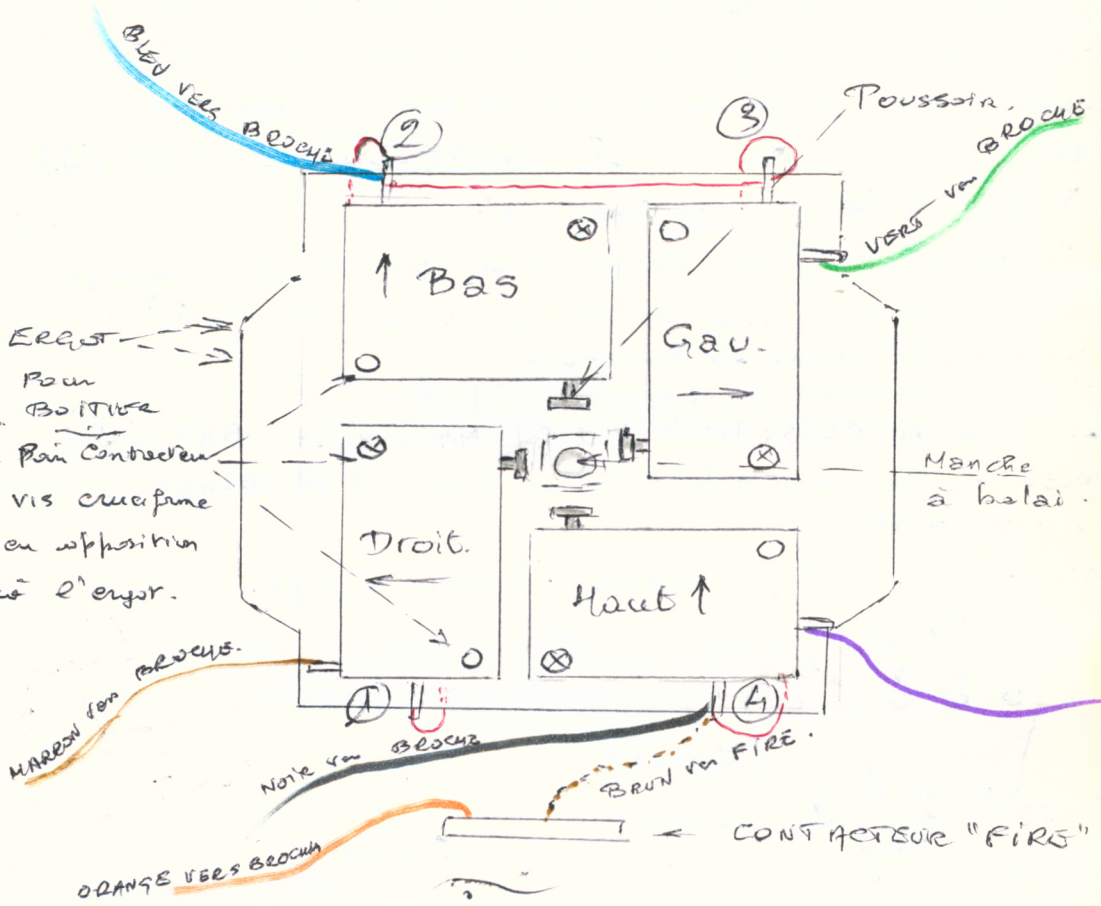 BLEU VERS BROCHE
2
3
Poussoir.
VERT vers BROCHE
Bas
Gau.
ERGOT
Pour
BOITIER
Pour Contacteur
vis cruciforme
en opposition
à l'ergot.
Manche
à balai.
Droit.
Haut
MARRON vers BROCHE.
1
4
NOIR vers BROCHE
BRUN vers FIRE.
CONTACTEUR "FIRE"
ORANGE VERS BROCHE